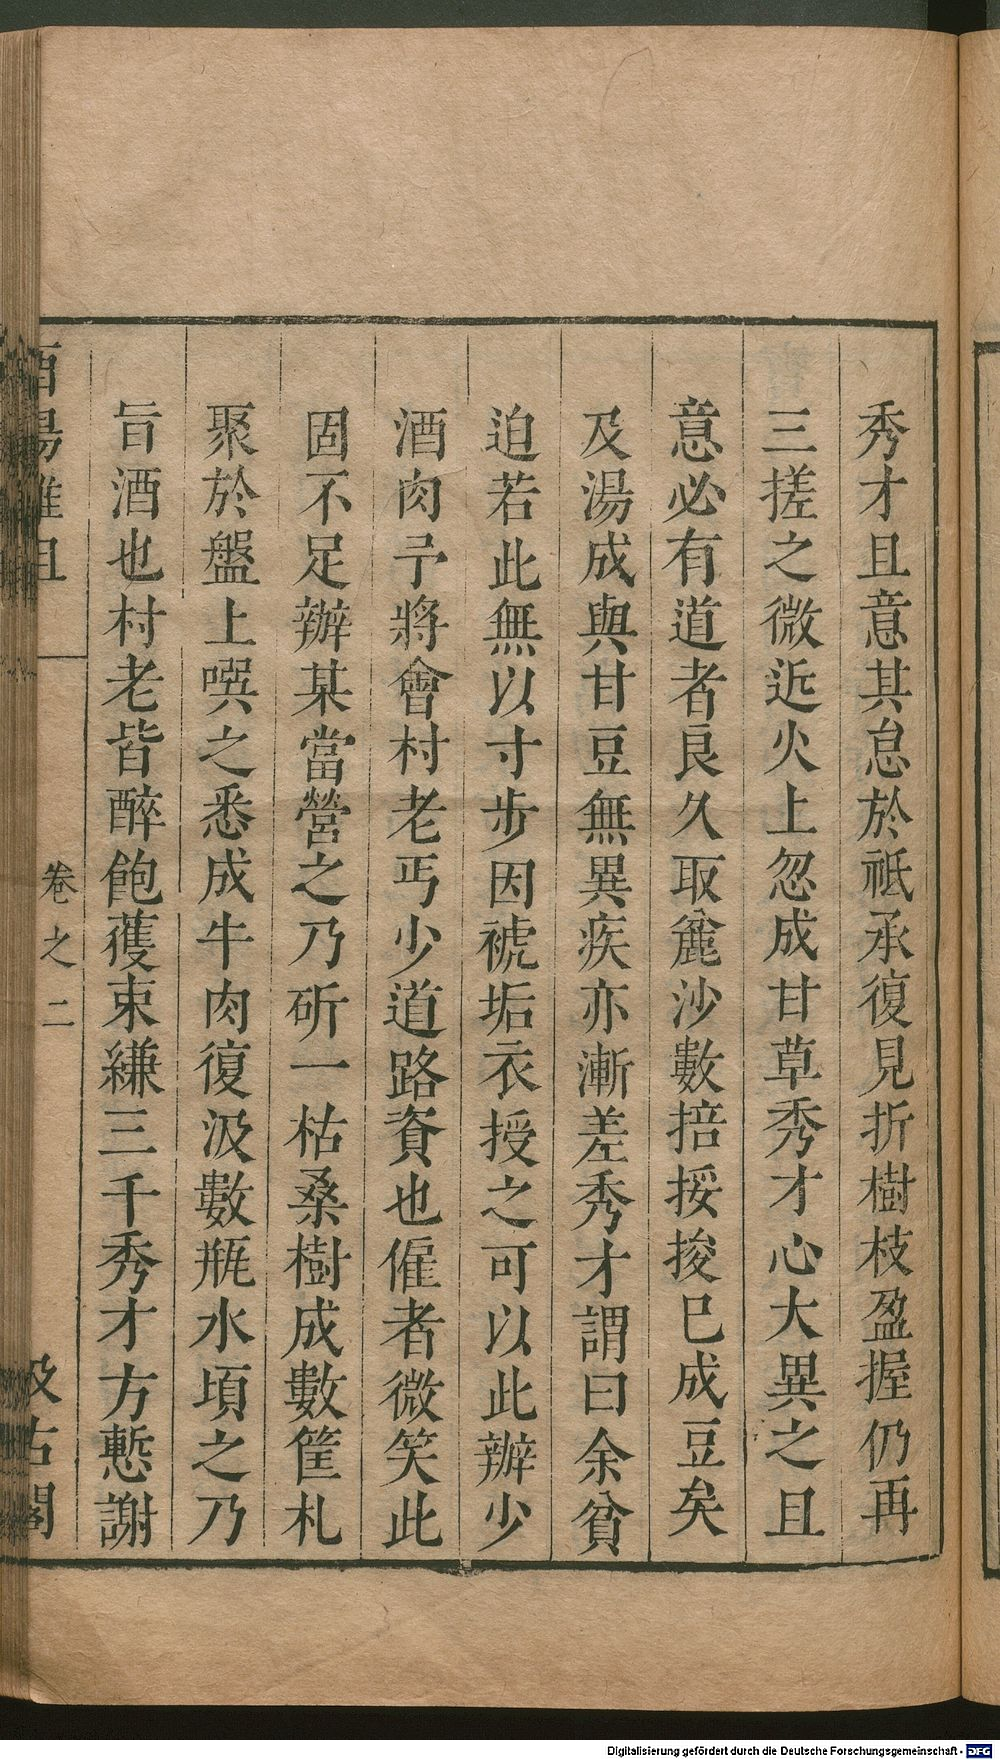 秀才且意其怠於祗承復見折樹枝盈握仍再
三搓之微近火上忽成甘草秀才心大異之且
意必有道者良久取麄沙數掊挼捘巳成豆矣
及湯成與甘豆無異疾亦漸差秀才謂曰余貧
迫若此無以寸步因褫垢衣授之可以此辦少
酒肉予將會村老丐少道路資也僱者微笑此
固不足辦某當營之乃斫一枯桑樹成數筐札
聚於盤上噀之悉成牛肉復汲數瓶水頃之乃
旨酒也村老皆醉飽獲束縑三千秀才方慙謝
酉陽雜俎 卷之二 汲古閣
Digitalisierung gefördert durch die Deutsche Forschungsgemeinschaft - DFG